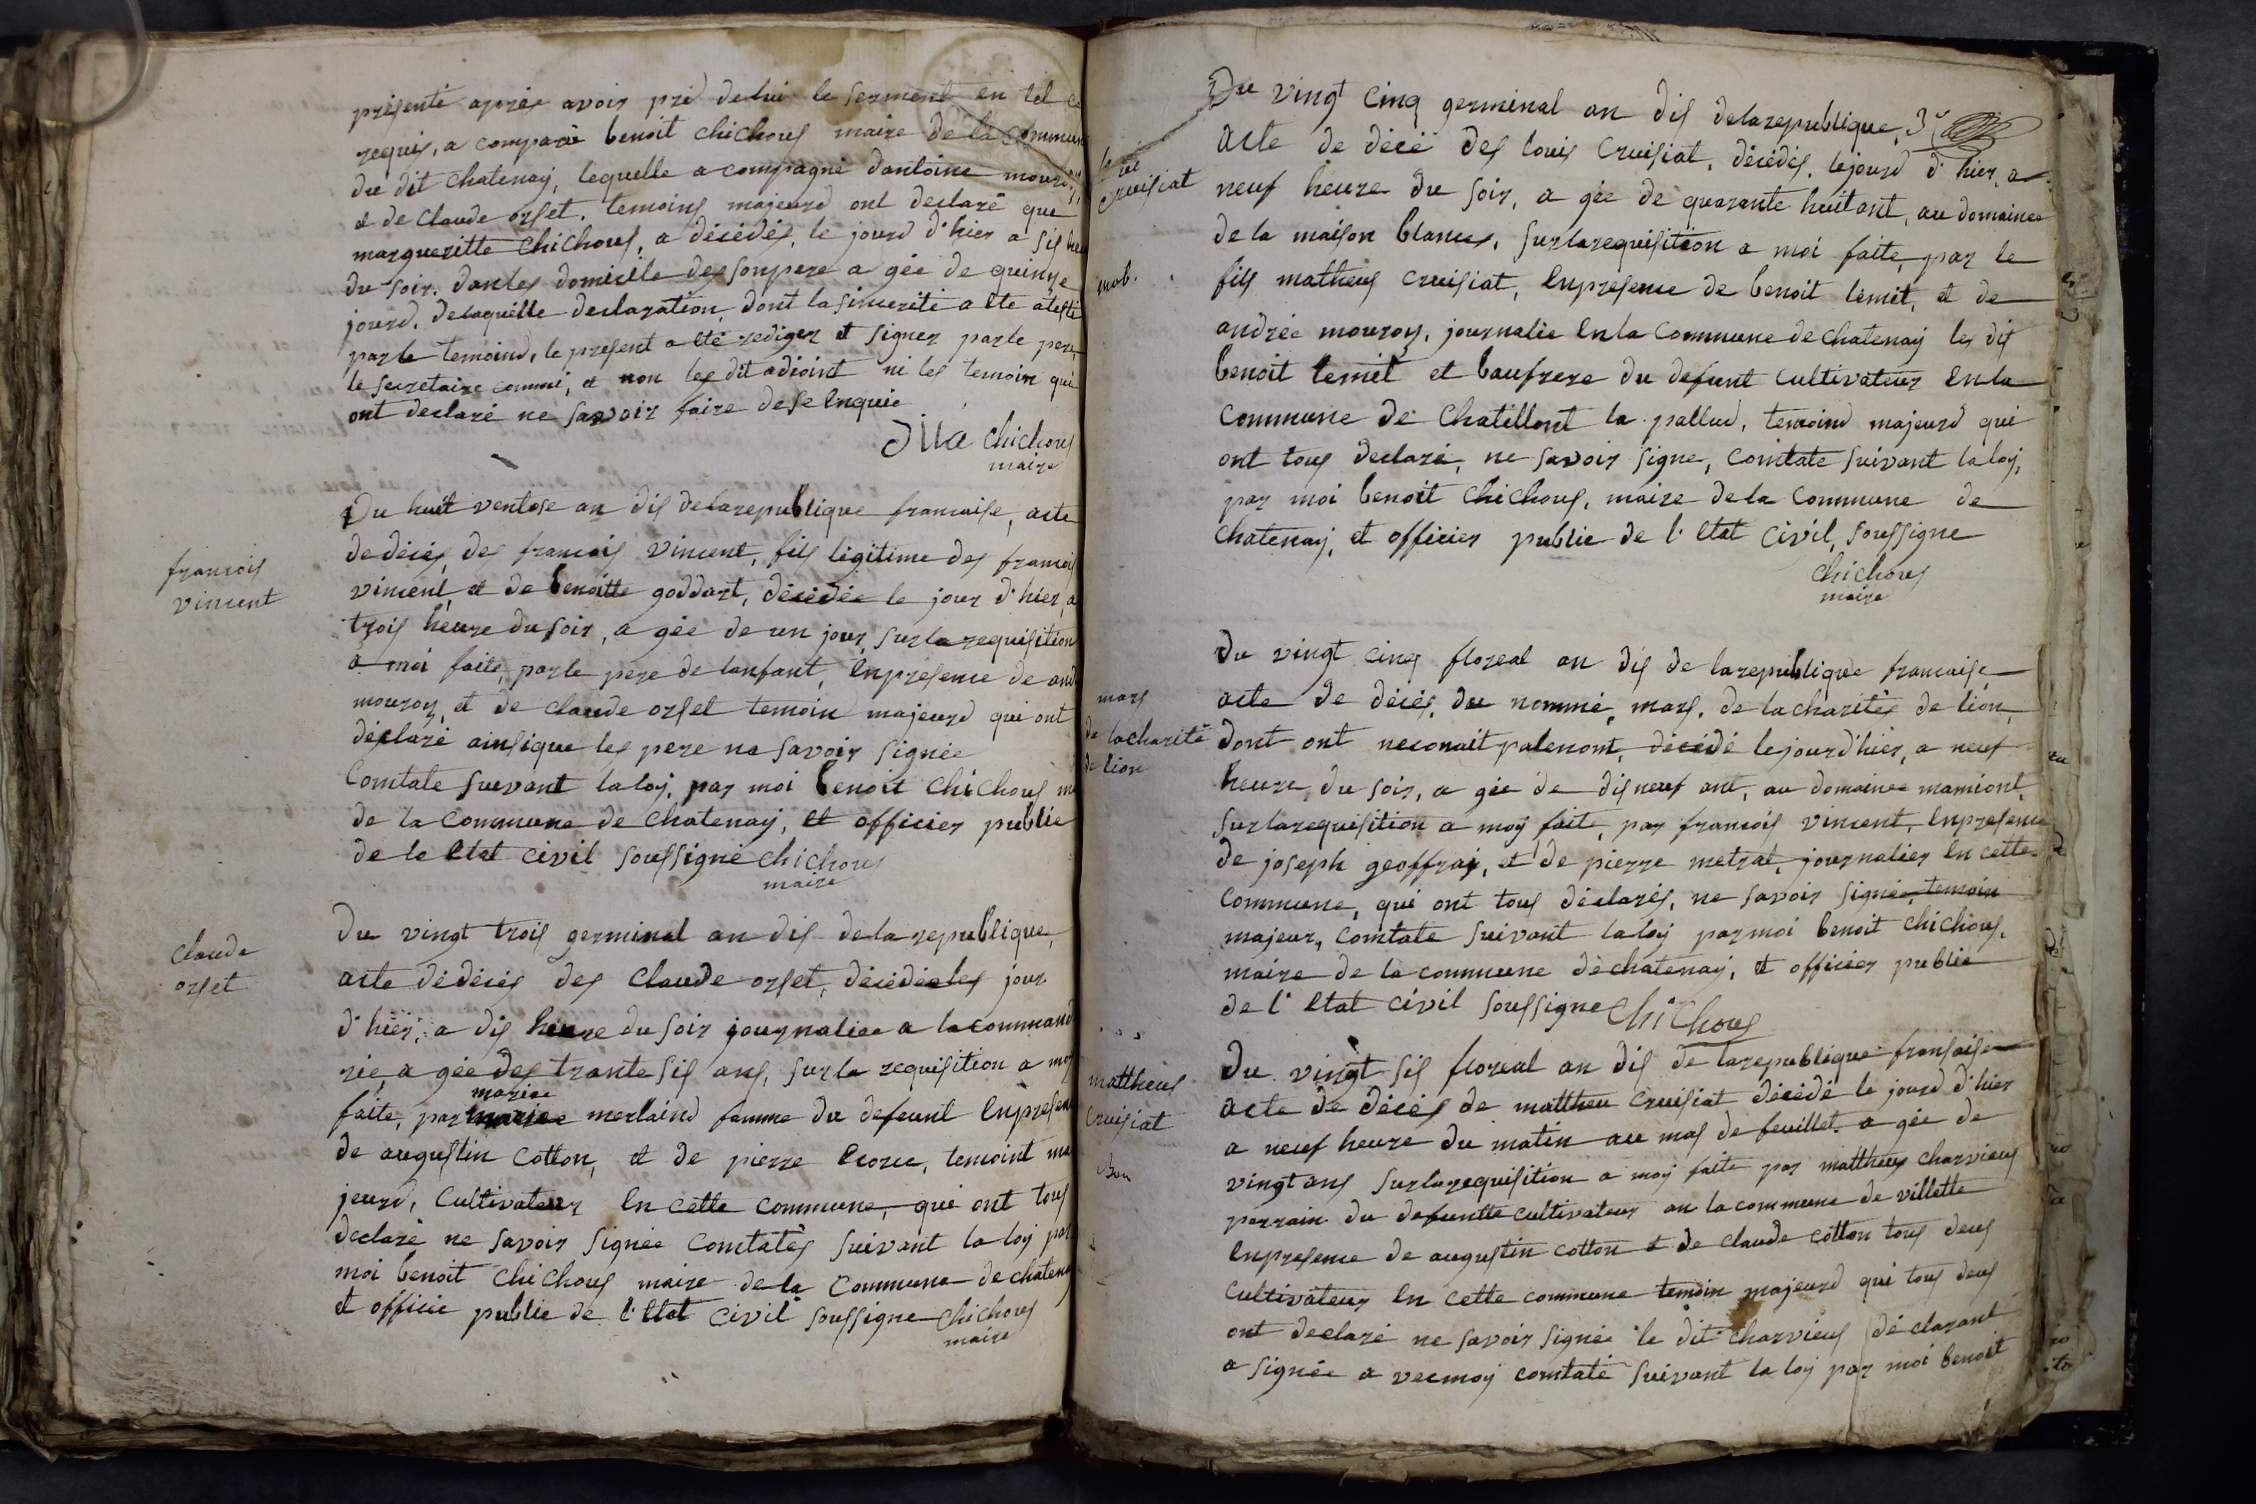 présenté après avoir prid delui le serment en tel
requis, a comparü benoit chichous maire de la commun
du dit chatenay, lequelle a compagné dantoine
et de claude orset. temoins majeurd ont declaré que
margueritte chichous, a décédés, le jourd d'hier a sis heu
du soir. danles domicile des sonpere a gée de quinze
jourd. delaquélle declaration, dont la sincerité a été atesté
parle temoind, le present a été rediger et signer parle pere,
le secretaire commi, et non les dit adioint ni les temoin qui
ont declaré ne savoir faire dese enquie
chichous
maire
francois
vincent
Du huit ventose an dis delarepublique francaise, acte
de décés, des francois vincent, fils légitime des francois
vincent, et de benoitte goddart, décédée le jour d'hier, a
trois heure du soir, a gée de un jour, surla requisition
a moi faite, parle pere de lanfant, enprésence de
mouron, et de claude orset temoin majeurd qui ont
déclaré ainsique les pere ne savoir signée
Comtate suivant la loy, par moi benoit chichous
de la commune de chatenay, et officier public
de le etat civil soussigné chichous
maire
claude
orset
Du vingt trois germinal an dis de la republique,
acte dédécés des claude orset, décédéeles jour
d'hier, a dis heure du soir journaliee a lacommand
rie, a gée des trante sis ans, surla requisition a moy
mariee
faite, par mariee merlaind famme du defeunt enpresen
de augustin cotton, et de pierre temoint ma
jeurd, cultivateur en cette commune, qui ont tous
declaré ne savoir signée comtatés suivant la loy par
moi benoit chichous maire de la commune de chatenay
et officie public de l'etat civil soussigne chichous
maire
cruisiat
Du vingt cinq germinal an dis delarepublique,
acte de décé des louis cruisiat, décédés, lejourd d'hier, a
neuf heure du soir, a gée de quarante huitant, au domainee
de la maison blance, surlarequisition a moi faite, par le
fils matheus cruisiat, enpresence de benoit lémit, et de
andrée mouron, journalie enla commune de chatenay les dit
benoit lemit et baufrere du defunt cultivateur enla
commune de chatillont la pallud, temoind majeurd qui
ont tous declaré, ne savoir signe, comtate suivant laloy,
par moi benoit chichous, maire de la commune de
chatenay, et officier public de l'etat civil, soussigne
chichous
maire
mars
de lacharité
de lion
Du vingt cinq floreal an dis de larepublique francaise
acte de décés, du nommé, mars, de lacharités de lion,
dont ont neconait palenont, décédé lejourd'hier, a neuf
heure, du soir, a gée de disneuf ant, au domainee mamiont,
surlarequisition a moy faite, par francois vincent, enpresence
de joseph geoffray, et de pierre metrat, journalier en cette
commune, qui ont tous déclarés, ne savoir signée, temoin
majeur, comtate suivant laloy parmoi benoit chichous,
maire de la commune dechatenay, et officier public
de l'etat civil soussigne chichous
mattheus
cruisiat
Du vingt sis floreal an dis de larepublique fransaise
acte de décés de mattheu cruisiat décédé le jourd d'hier
a neuf heure du matin au mas de feuillet a gée de
vingt ans surlarequisition a moy faite par mattheus charvieus
parrain du defuntte cultivateur an la commune de villette
enpresence de augustin cotton et de claude cotton tous deus
cultivateur en cette commune temoin majeurd qui tous deus
ont declaré ne savoir signée le dit charvieus déclarant
a signée a vecmoy comtaté suivant la loy par moi benoit